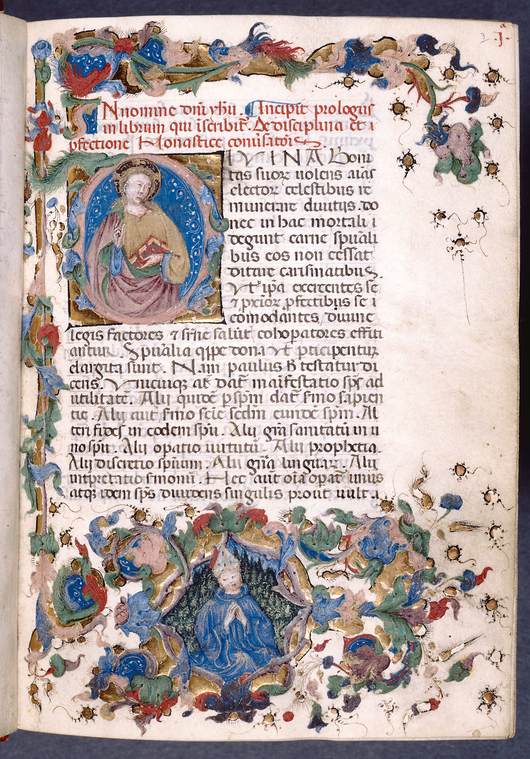 J.
IN nomine dñi yhu. Incipit prologus
in librum qui iscribit̃. De disciplina et i
pfectione Monastice conũsatiõis
DIVINA boni
tas suoꝝ uolens aīas
elector celestibus re
munerare diuitijs do
nec in hac mortali i
degunt carne spũali
bus eos non cessat
ditare carismatibus.
Vt ipa exercentes se
et pxioꝝ pfectibus se i
comodantes, diuine
legis factores et sīne salut̃ cohopatores effiti
antur. Spũalia qͥpe dona vt pticipentur
elargita sunt. Nam paulus h testatur di
cens. Vnicuiqꝫ at̃ dat̃ maifestatio sp̃s ad
utilitatẽ. Alij quidẽ p sp̃m dat̃ s̃mo sapien
tie. Alij aut̃ s̃mo scie sc̃dm eundẽ sp̃m. Al
teri fides in eodem sp̃u. Alij gr̃a sanitatũ in u
no sp̃u. Alij opatio uirtutũ. Alij prophetia.
Alij discretio spirituũ. Alij gña linguaꝝ. Alij
intpretatio s̃monũ. Hec aut̃ oĩa opat̃ unus
atqꝫ idem sp̃s diuidens singulis prout uult. a